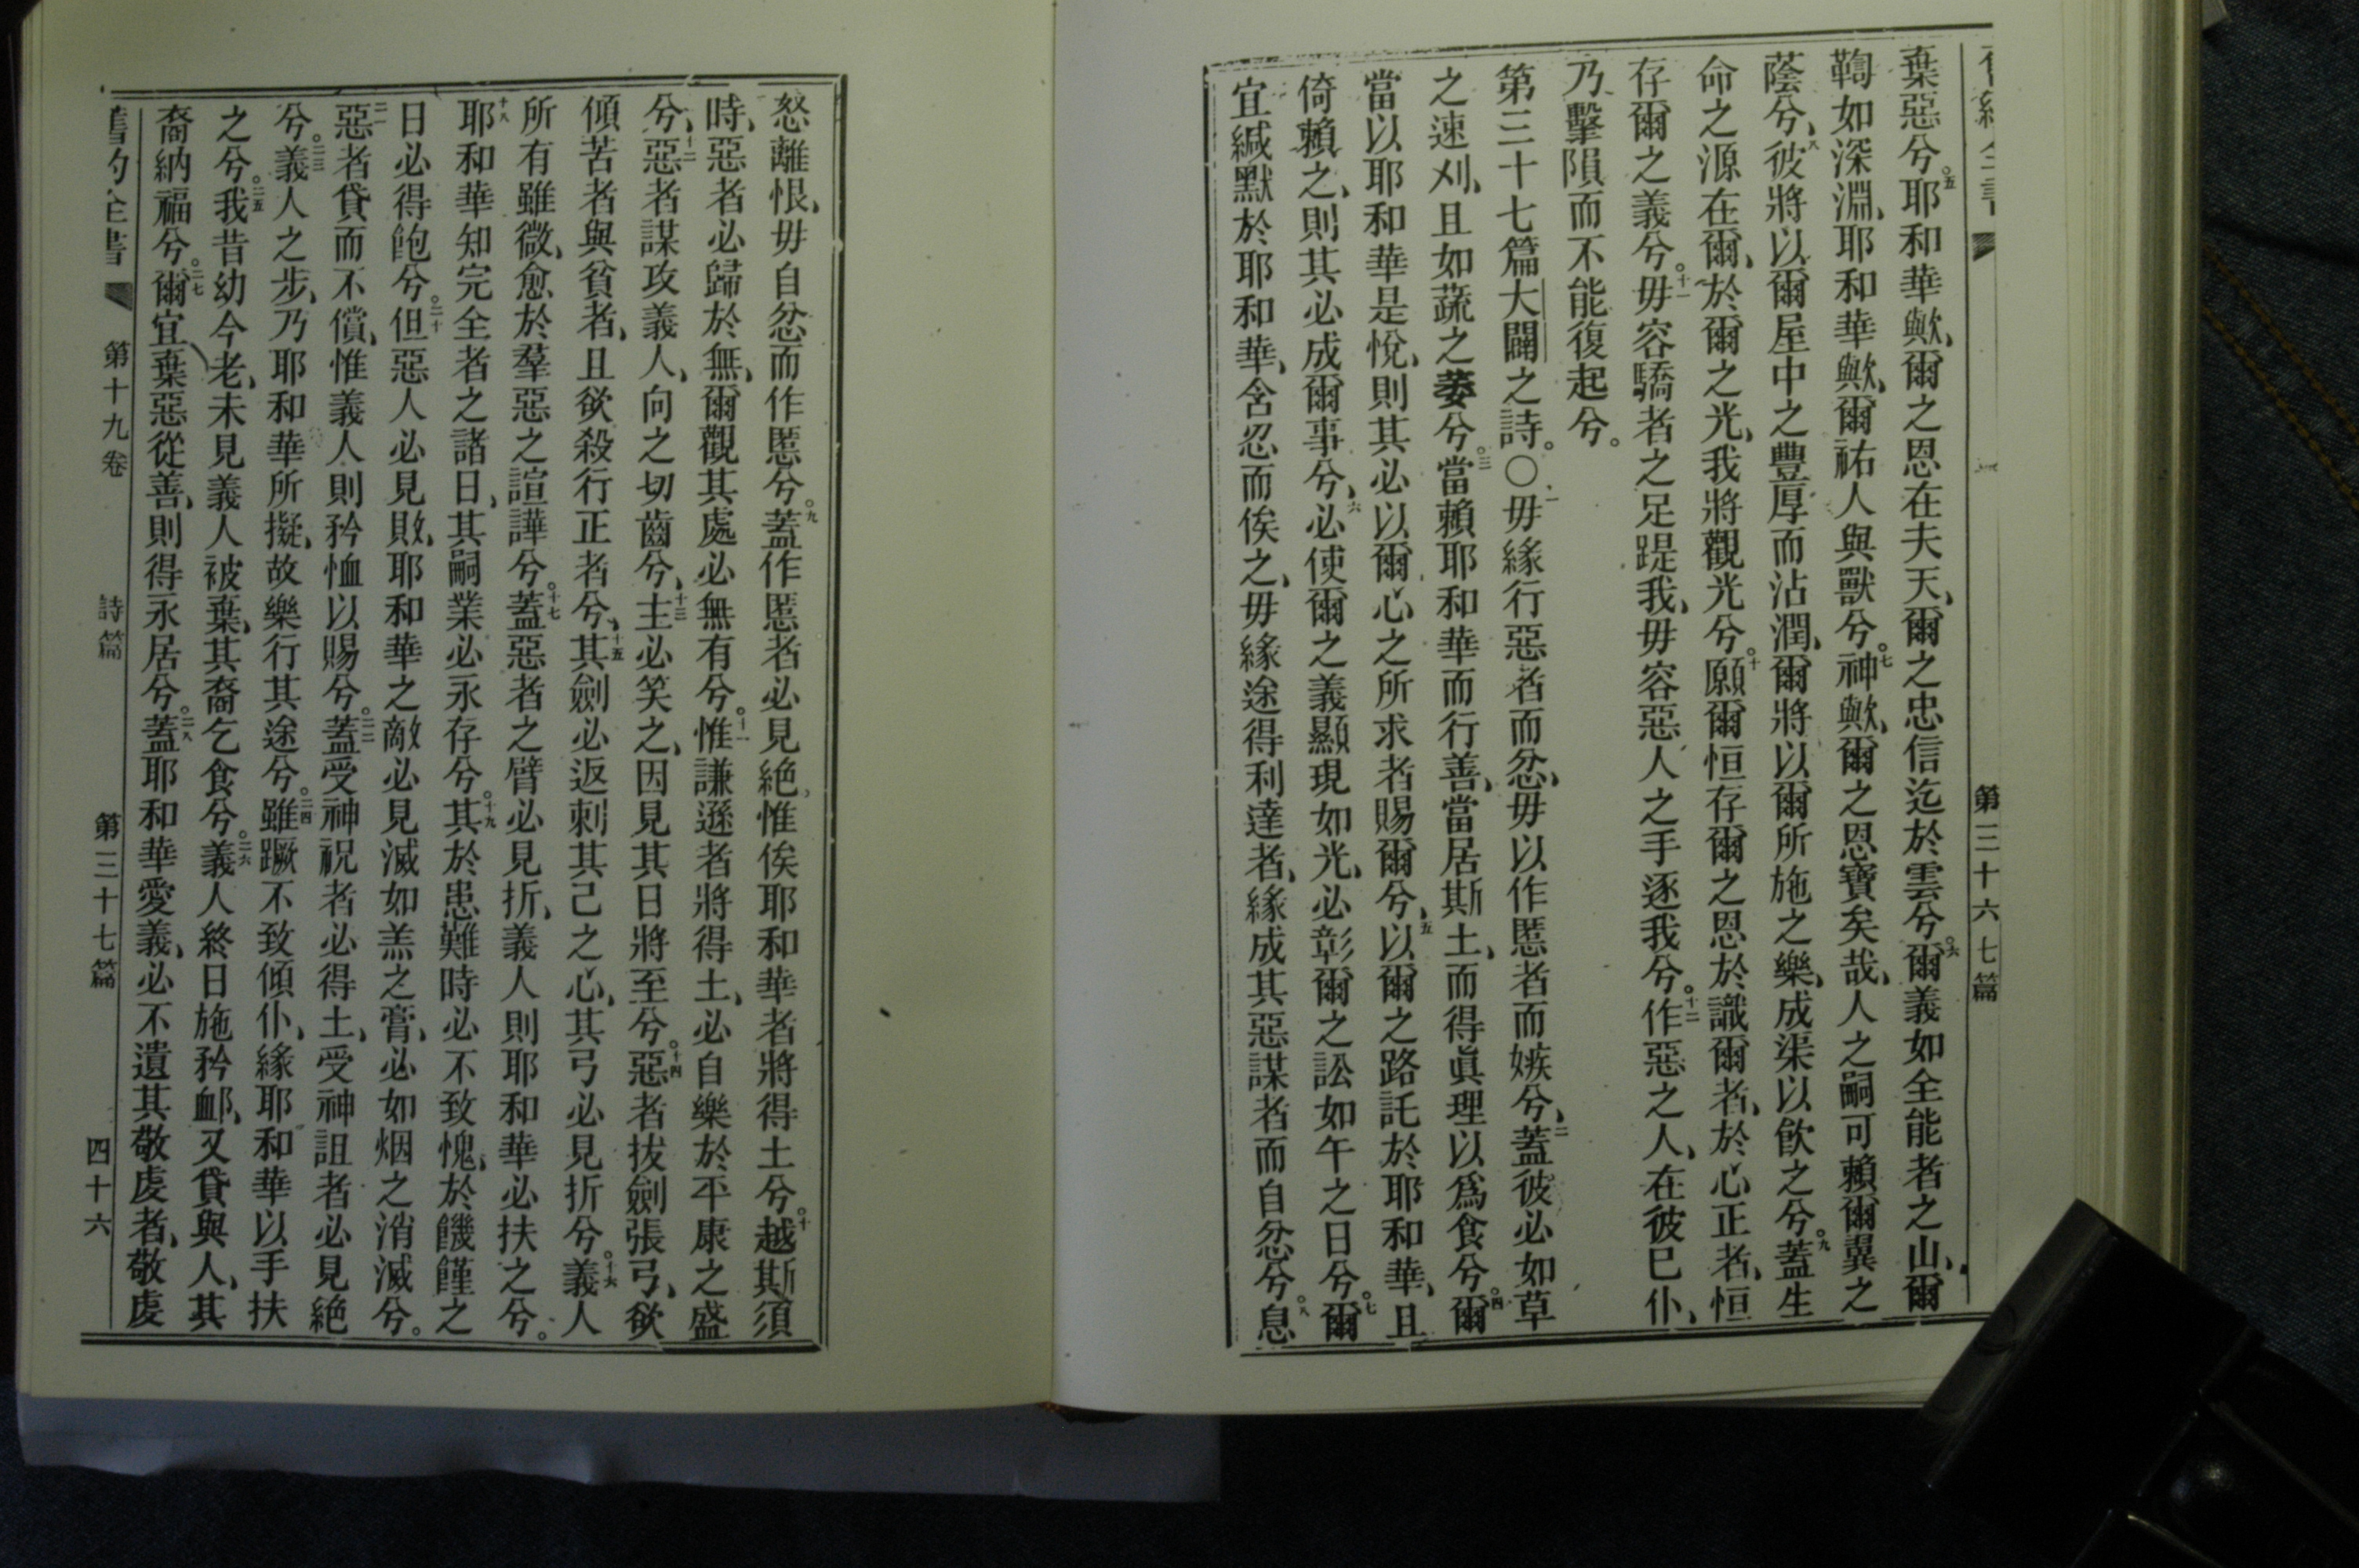 第三十六七篇
棄惡兮。五耶和華歟、爾之恩在夫天、爾之忠信迄於雲兮。六爾義如全能者之山、爾
鞫如深淵、耶和華歟、爾祐人與獸兮。七神歟、爾之恩寶矣哉、人之嗣可賴爾翼之
蔭兮、八彼將以爾屋中之豐厚而沾潤、爾將以爾所施之樂、成渠以飲之兮。九蓋生
命之源在爾、於爾之光、我將觀光兮。十願爾恒存爾之恩於識爾者、於心正者、恒
存爾之義兮。十一毋容驕者之足踶我、毋容惡人之手逐我兮。十二作惡之人、在彼已仆、
乃擊隕而不能復起兮。
第三十七篇大闢之詩。〇一毋緣行惡者而忿、毋以作慝者而嫉兮、二蓋彼必如草
之速刈、且如蔬之萎兮。三當賴耶和華而行善、當居斯土、而得眞理以爲食兮。四爾
當以耶和華是悅、則其必以爾心之所求者賜爾兮、五以爾之路託於耶和華、且
倚賴之、則其必成爾事兮、六必使爾之義顯現如光、必彰爾之訟如午之日兮。七爾
宜緘默於耶和華、含忍而俟之、毋緣途得利達者、緣成其惡謀者而自忿兮。八息
怒離恨、毋自忿而作慝兮。九蓋作慝者必見絕、惟俟耶和華者將得土兮。十越斯須
時、惡者必歸於無、爾觀其處必無有兮。十一惟謙遜者將得土、必自樂於平康之盛
兮、十二惡者謀攻義人、向之切齒兮、十三主必笑之、因見其日將至兮。十四惡者拔劍張弓、欲
傾苦者與貧者、且欲殺行正者兮、十五其劍必返刺其己之心、其弓必見折兮。十六義人
所有雖微、愈於羣惡之諠譁兮。十七蓋惡者之臂必見折、義人則耶和華必扶之兮。
十八耶和華知完全者之諸日、其嗣業必永存兮。十九其於患難時必不致愧、於饑饉之
日必得飽兮。二十但惡人必見敗、耶和華之敵必見滅如羔之膏、必如烟之消滅兮。
二一惡者貸而不償、惟義人則矜恤以賜兮。二二蓋受神祝者必得土、受神詛者必見絕
兮。二三義人之步、乃耶和華所擬、故樂行其途兮。二四雖蹶不致傾仆、緣耶和華以手扶
之兮。二五我昔幼今老、未見義人被棄、其裔乞食兮。二六義人終日施矜卹、又貸與人、其
裔納福兮。二七爾宜棄惡從善、則得永居兮。二八蓋耶和華愛義、必不遺其敬虔者、敬虔
舊約全書 第十九卷 詩篇 第三十七篇 四十六